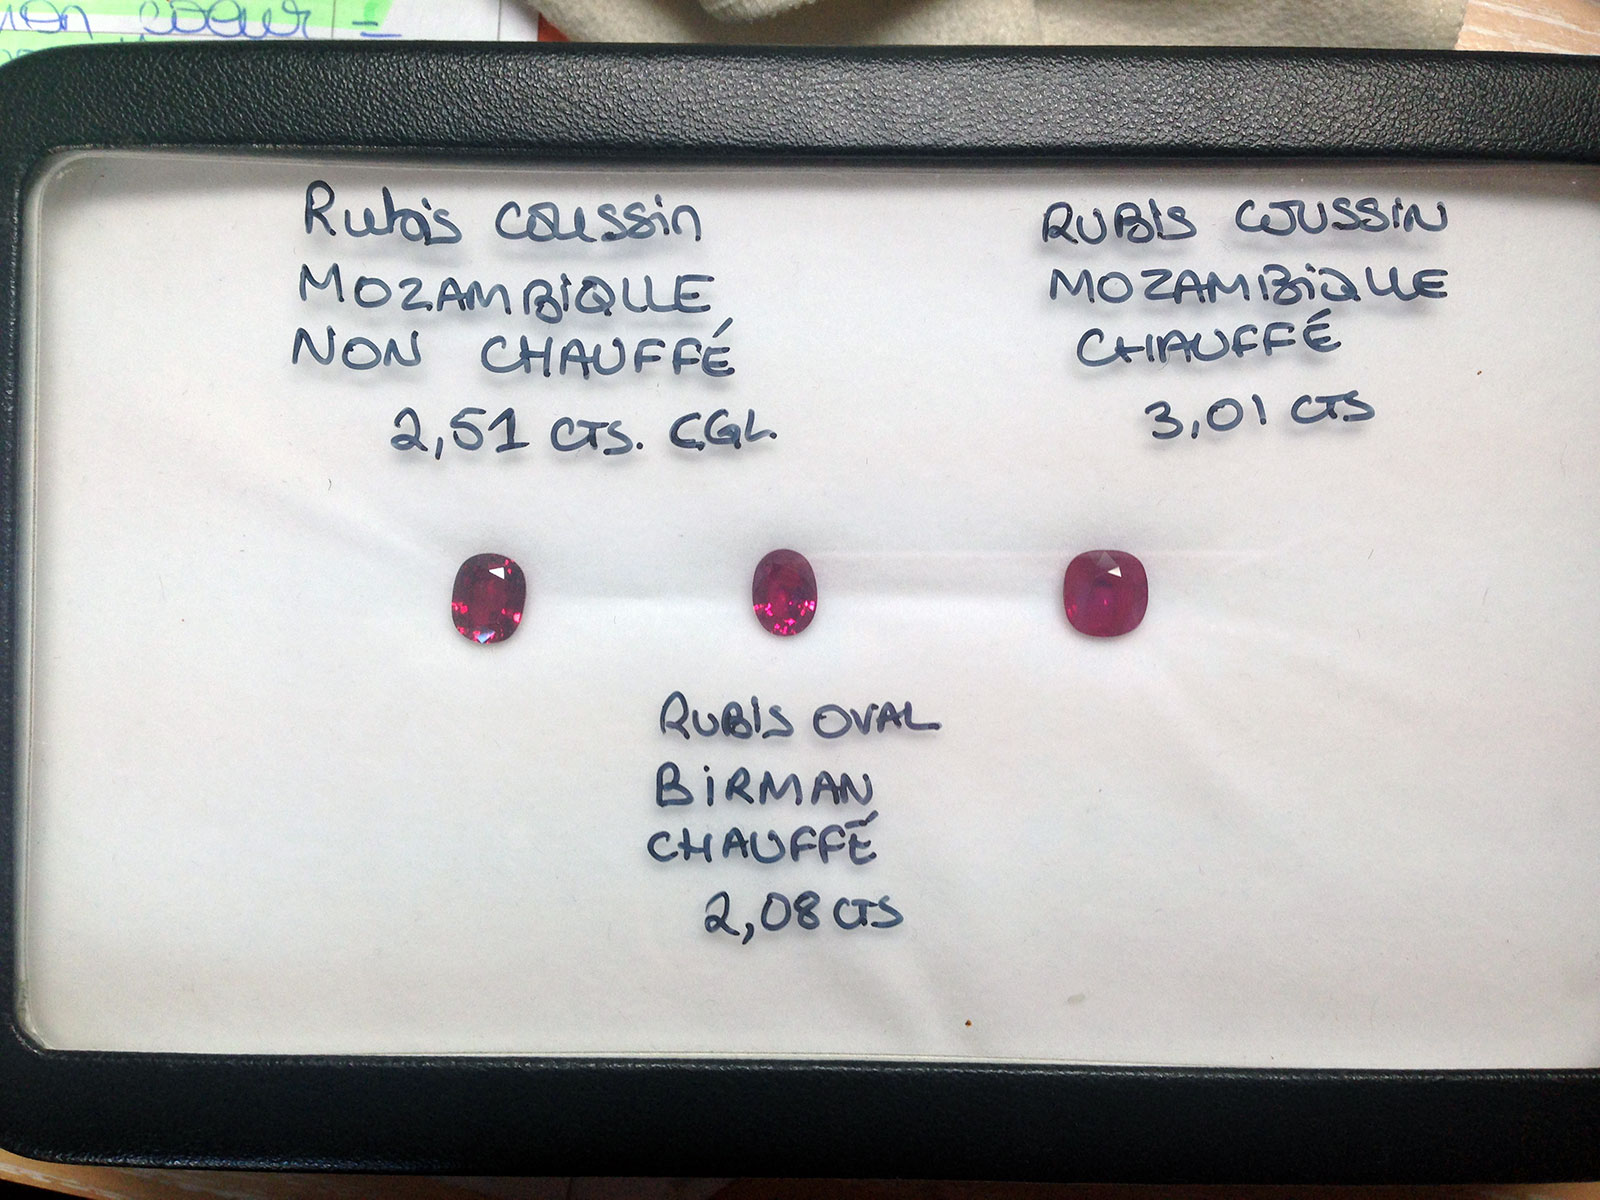 mon coeur =
Rubis coussin
MOZAMBiQUE
NON CHAUFFÉ
2,51 CTS. CGL.
RUBIS COUSSIN
MOZAMBiQUE
CHAUFFÉ
3,01 CTS
RUBIS OVAL
BiRMAN
CHAUFFÉ
2,08 CTS